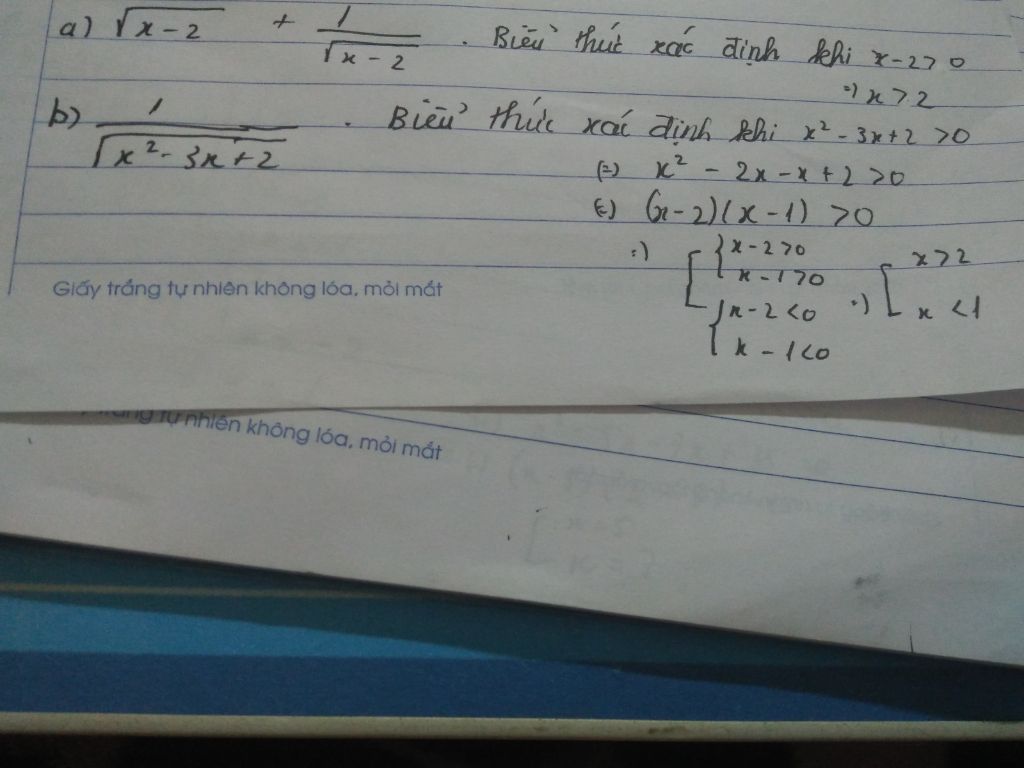 a) √x-2 + 1/√x-2 . Biểu thức xác định khi x-2>0
=) x>2
b) 1/√x²-3x+2 . Biểu thức xác định khi x²-3x+2>0
(=) x²-2x-x+2>0
(=) (x-2)(x-1)>0
=) [ { x-2>0 x-1>0 { x-2<0 x-1<0 =) [ x>2 x<1
Giấy trắng tự nhiên không lóa, mỏi mắt
trắng tự nhiên không lóa, mỏi mắt